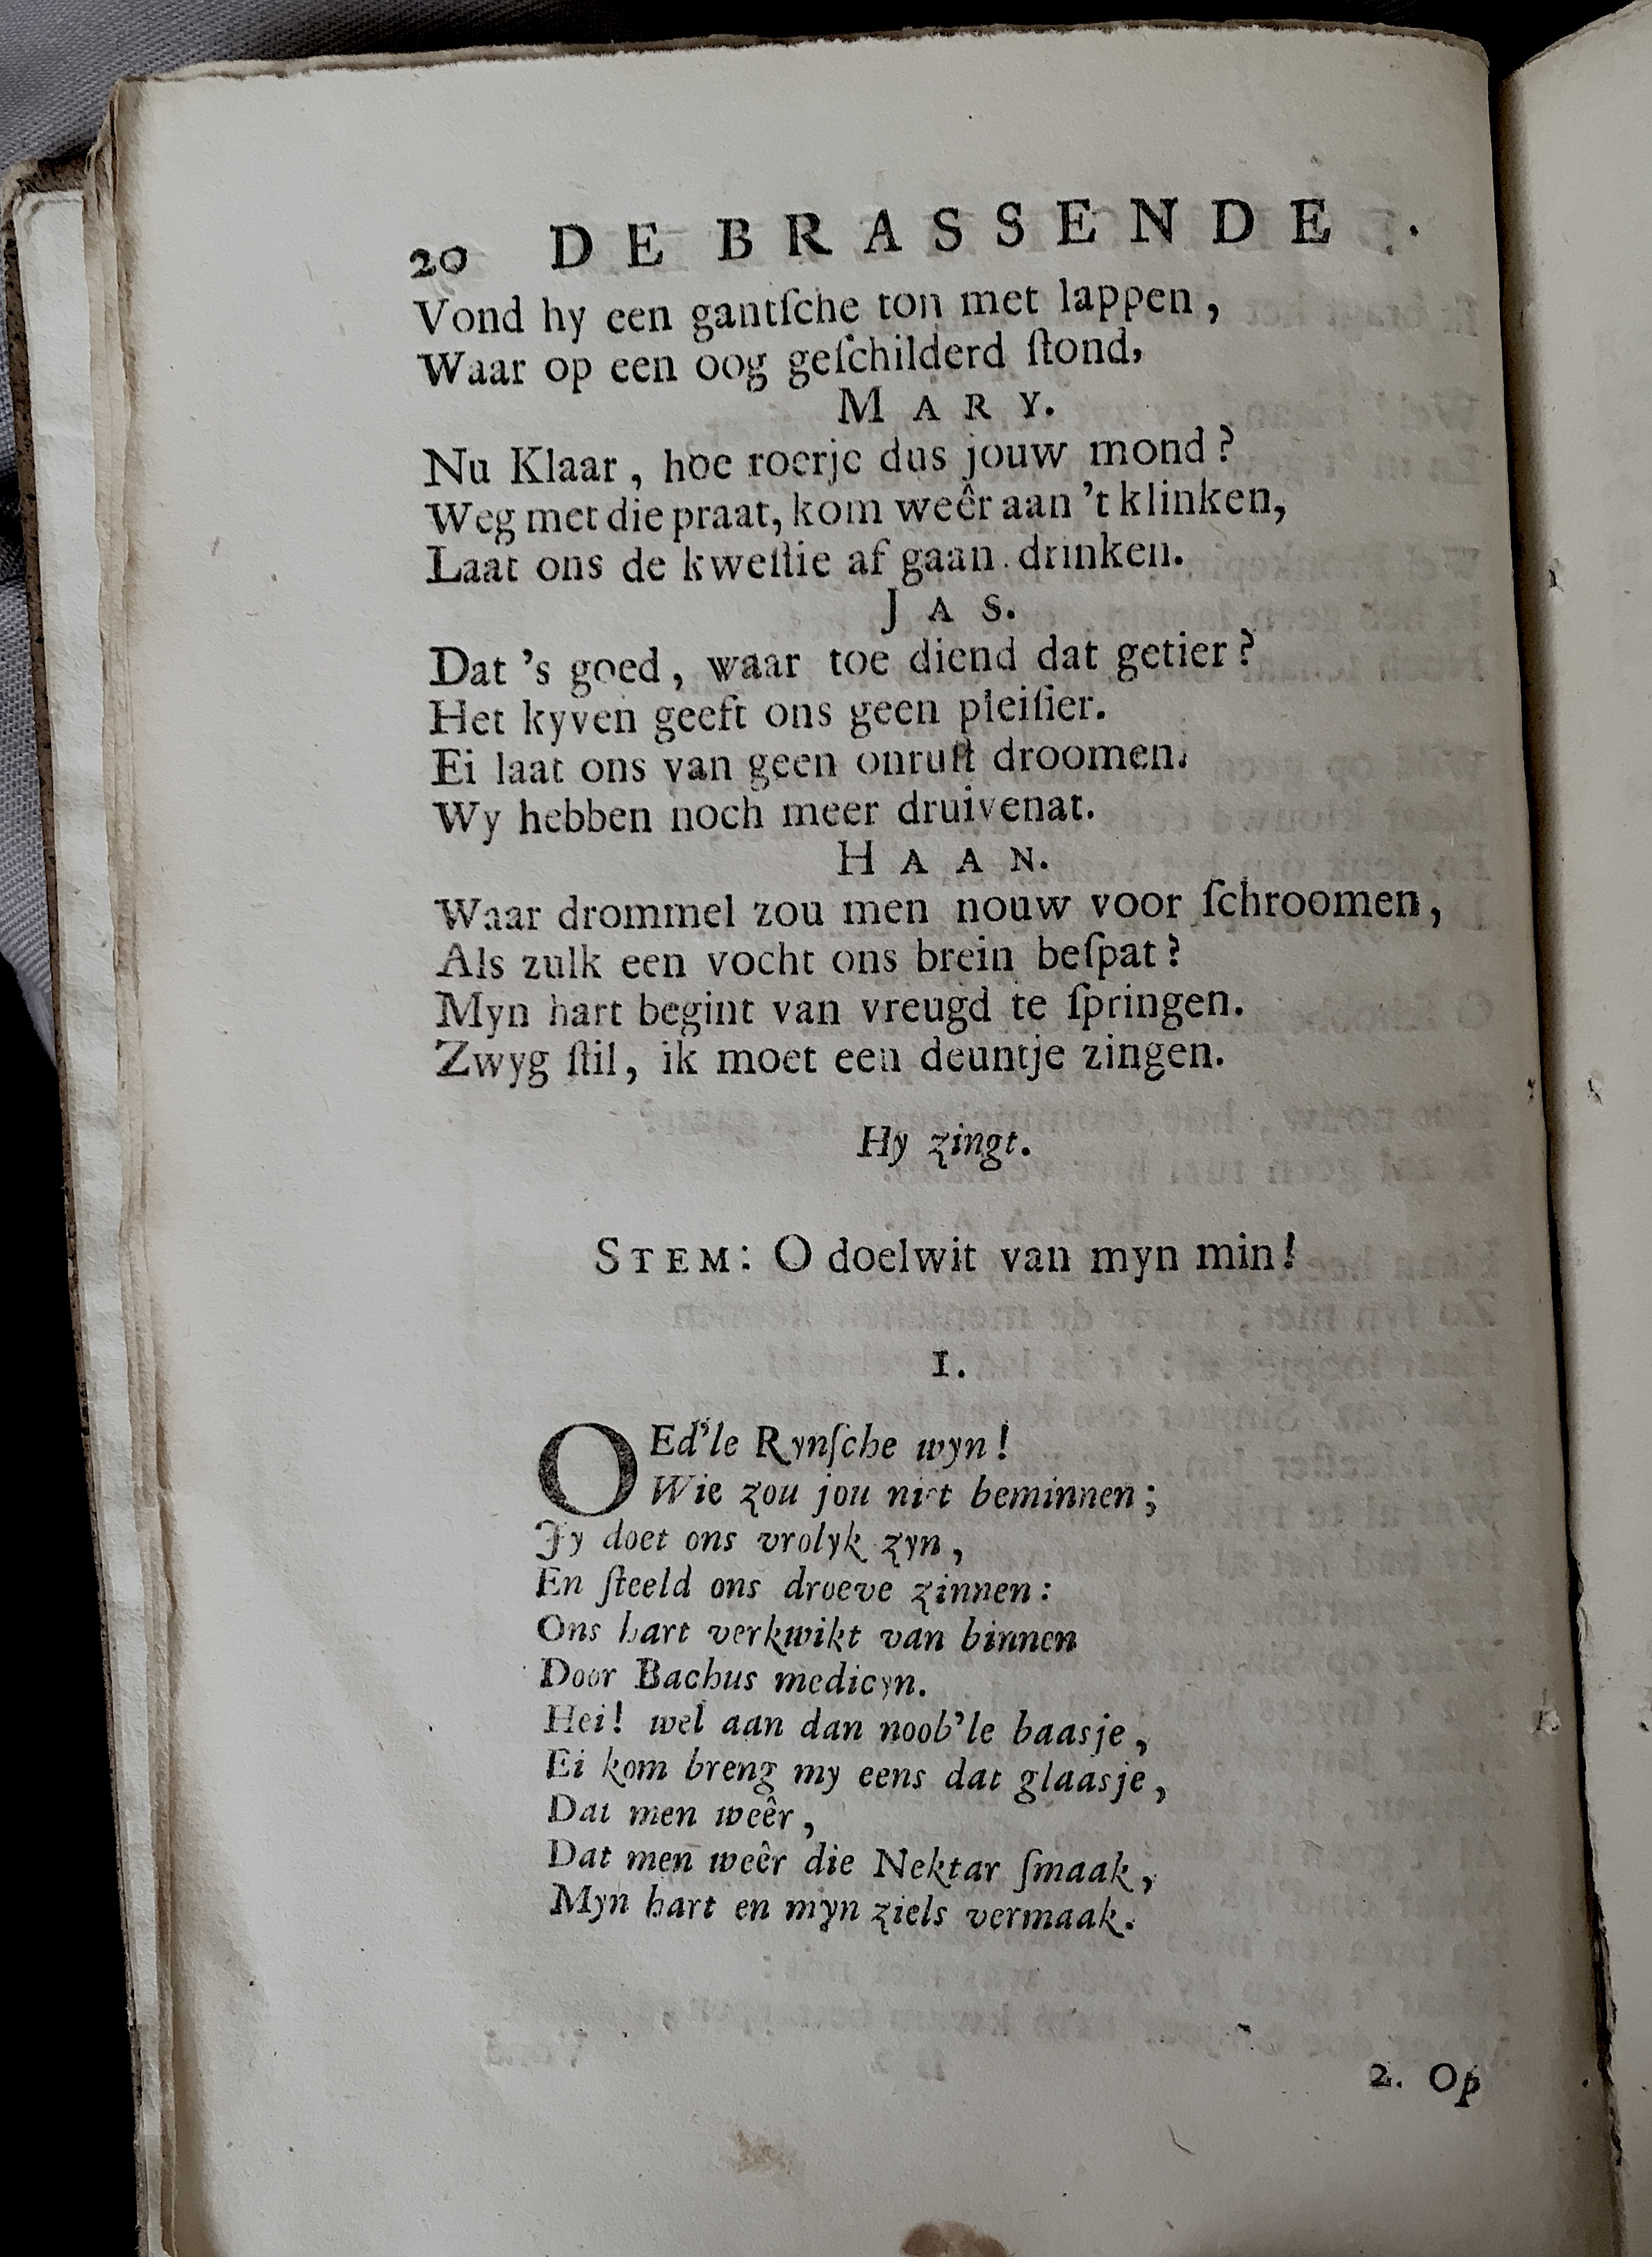 20 DE BRASSENDE
Vond hy een gantſche ton met lappen,
Waar op een oog geſchilderd ſtond,
MARY.
Nu Klaar, hoe roerje dus jouw mond?
Weg met die praat, kom weêr aan 't klinken,
Laat ons de kweſtie af gaan drinken.
JAS.
Dat 's goed, waar toe diend dat getier?
Het kyven geeft ons geen pleiſier.
Ei laat ons van geen onruſt droomen.
Wy hebben noch meer druivenat.
HAAN.
Waar drommel zou men nouw voor ſchroomen,
Als zulk een vocht ons brein beſpat?
Myn hart begint van vreugd te ſpringen.
Zwyg ſtil, ik moet een deuntje zingen.
Hy zingt.
STEM: O doelwit van myn min!
1.
O Ed'le Rynſche wyn!
Wie zou jou niet beminnen;
Jy doet ons vrolyk zyn,
En ſteeld ons droeve zinnen:
Ons hart verkwikt van binnen
Door Bachus medicyn.
Hei! wel aan dan noob'le baasje,
Ei kom breng my eens dat glaasje,
Dat men weêr,
Dat men weêr die Nektar ſmaak,
Myn hart en myn ziels vermaak.
2. Op